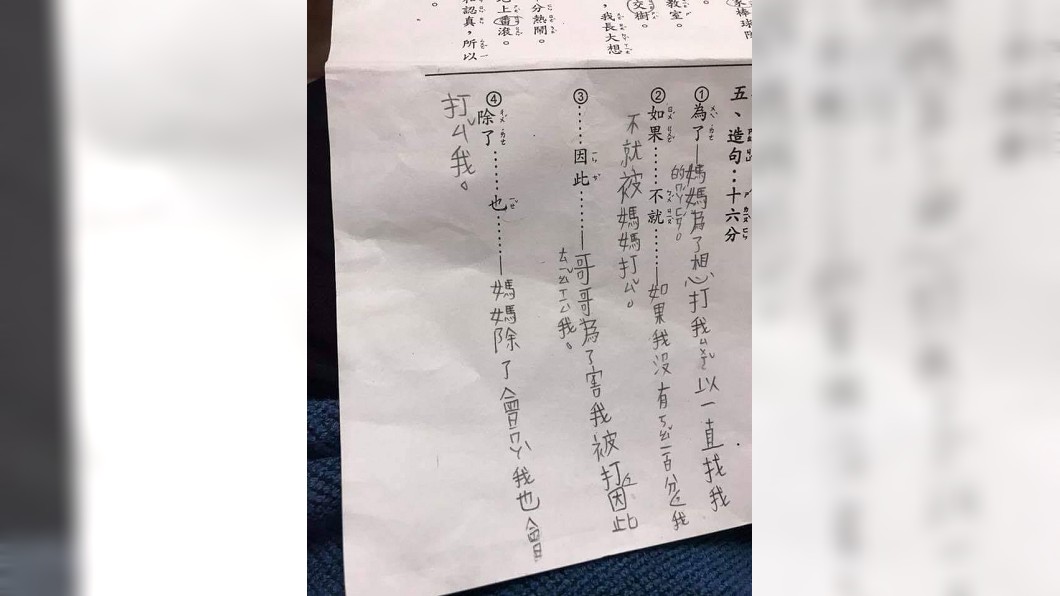 分熱鬧。
地上畫滾。
和認真，所以
教室。
交樹。
，我長大想
五、造句：十六分
①為了—媽媽為了想打我ㄙㄨㄛˇ以一直找我
的ㄇㄚˊㄈㄢˊ。
②如果……不就……—如果我沒有ㄎㄠˇ一百分我
不就被媽媽打ㄙˇ。
③……因此……—哥哥為了害我被打因此
ㄊㄧㄠˇㄒㄧㄥˋ我。
④除了……也……—媽媽除了會ㄇㄚˋ我也會
打ㄙˇ我。